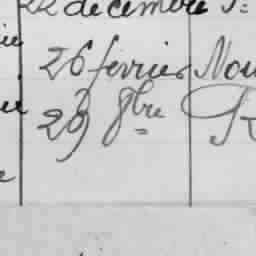 22 decembre
26 fevrier Nou
29 8bre R